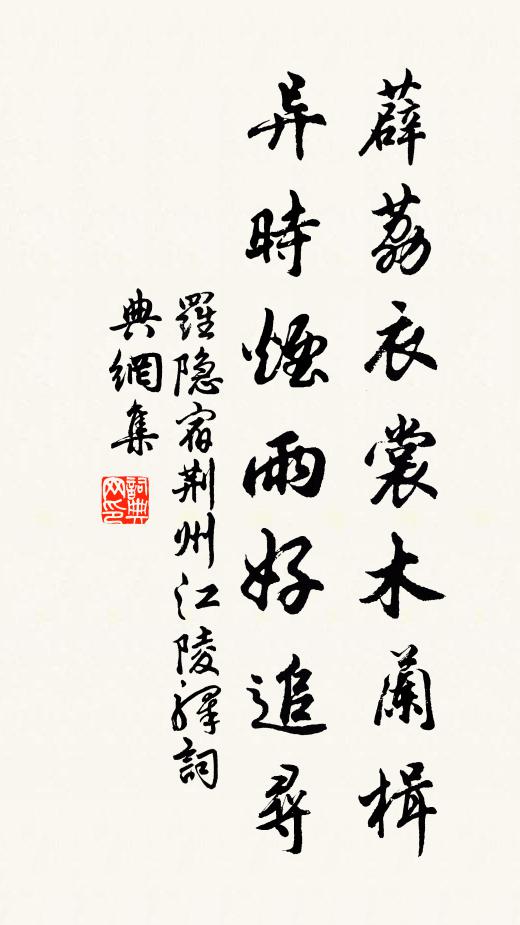 薜荔衣裳木蘭楫
异時煙雨好追尋
羅隐宿荆州江陵驛詞
典網集
詞典網印